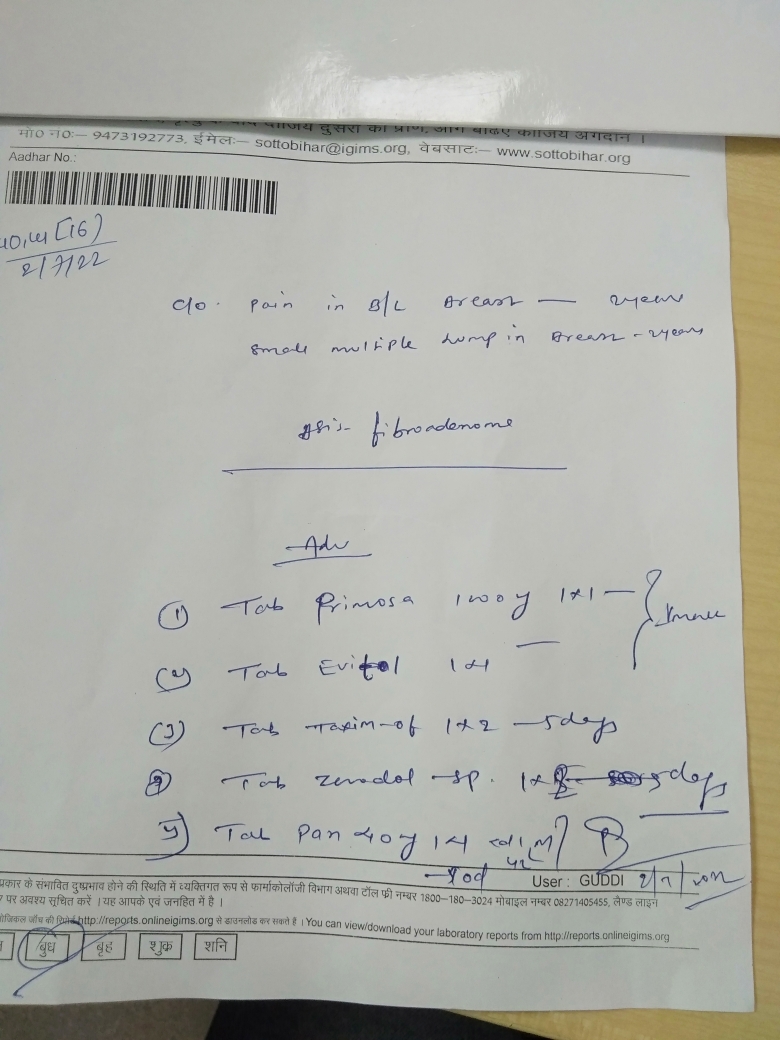 मो० नं०:– 9473192773, ईमेलः– sottobihar@igims.org, वेबसाटः– www.sottobihar.org
Aadhar No.:
[16]
2/7/22
c/o. Pain in B/L Breast — 2years
Small multiple Lump in Breast - 2years
fibroadenoma
Adv
① Tab Primosa 1000 1x1 —
② Tab 1x1
③ Tab Taxim-of 1x2 — 5days
④ Tab Zerodol -sp. 5days
5) Tab Pan 40
User : GUDDI 2/7/2022
प्रकार के संभावित दुष्प्रभाव होने की स्थिति में व्यक्तिगत रूप से फार्माकोलॉजी विभाग अथवा टॉल फ्री नम्बर 1800–180–3024 मोबाइल नम्बर 08271405455, लैण्ड लाइन
पर अवश्य सूचित करें । यह आपके एवं जनहित में है ।
http://reports.onlineigims.org से डाउनलोड कर सकते हैं । You can view/download your laboratory reports from http://reports.onlineigims.org
बुध बृह शुक्र शनि